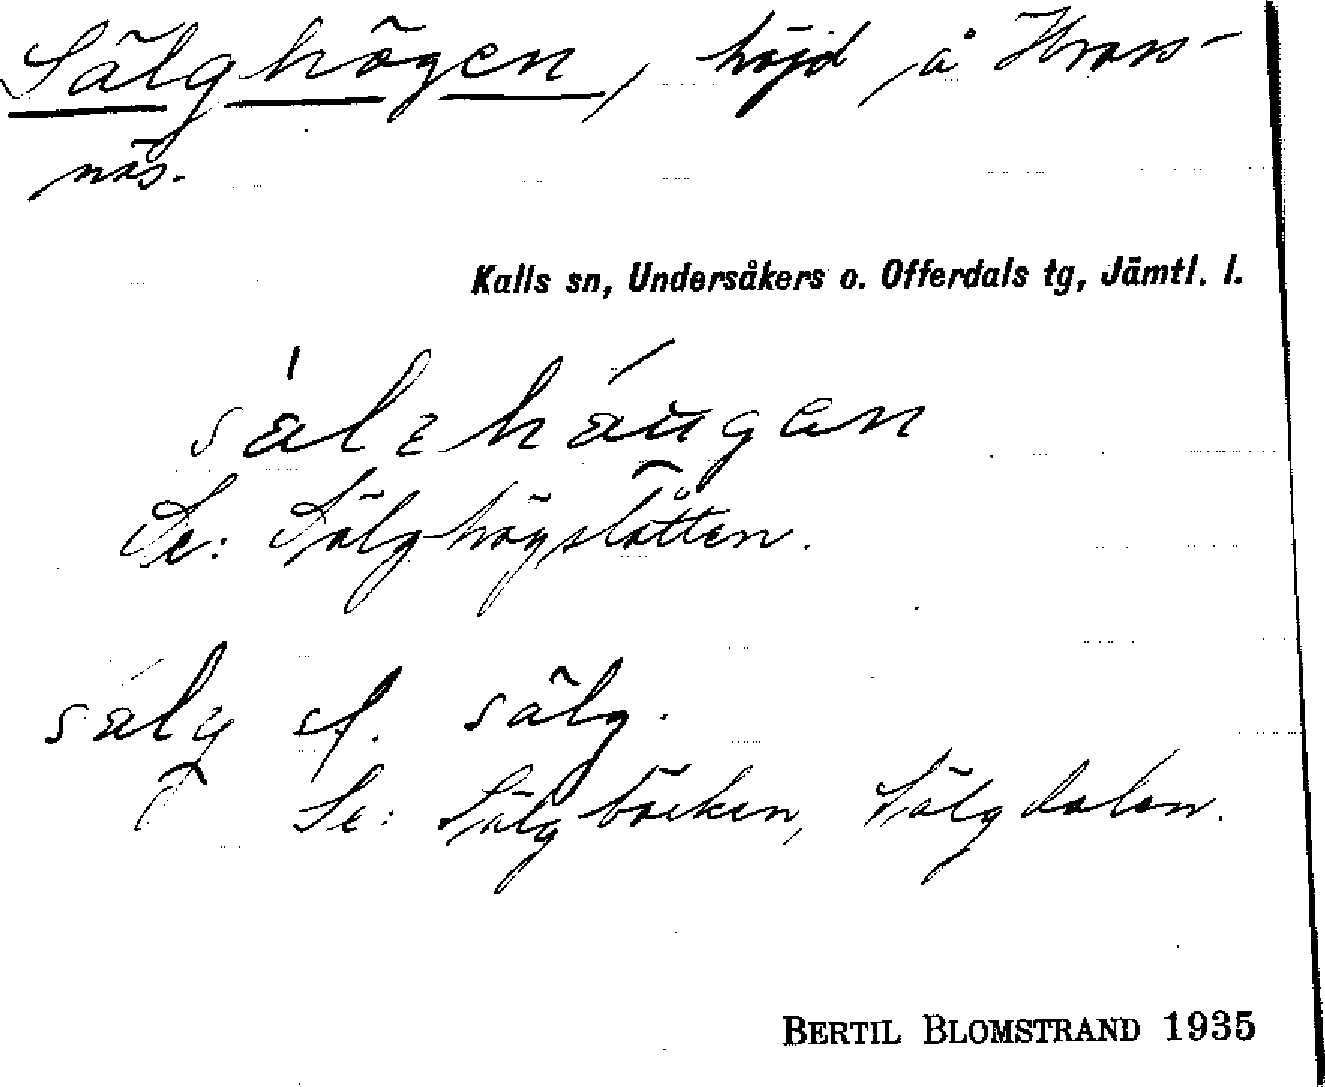 Sälghögen, höjd å Kvass-
näs.
Kalls sn, Undersåkers o. Offerdals tg, Jämtl. l.
Se: Sälghögslåtten.
sälg sf. sälg.
Se: Sälgbäcken, Sälgdalen.
BERTIL BLOMSTRAND 1935